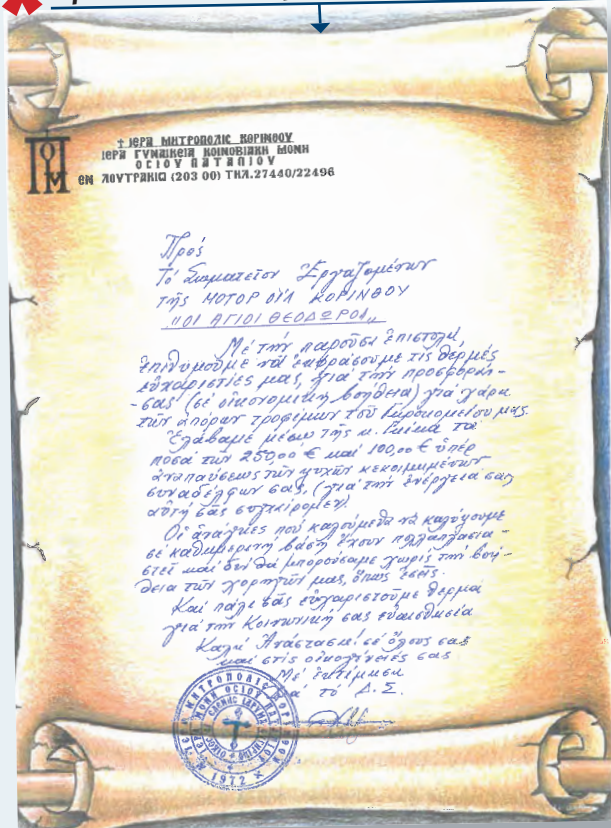 † ΙΕΡΑ ΜΗΤΡΟΠΟΛΙΣ ΚΟΡΙΝΘΟΥ
ΙΕΡΑ ΓΥΝΑΙΚΕΙΑ ΚΟΙΝΟΒΙΑΚΗ ΜΟΝΗ
ΟΣΙΟΥ ΠΑΤΑΠΙΟΥ
ΕΝ ΛΟΥΤΡΑΚΙῼ (203 00) ΤΗΛ.27440/22496
Πρός
Τό Σωματεῖον Ἐργαζομένων
τῆς ΜΟΤΟΡ ΟΪΛ ΚΟΡΙΝΘΟΥ
"ΟΙ ΑΓΙΟΙ ΘΕΟΔΩΡΟΙ"
Μέ τήν παροῦσα ἐπιστολή,
ἐπιθυμοῦμε νά ἐκφράσουμε τίς θερμές
εὐχαριστίες μας, γιά τήν προσφορά-
-σας (σέ οἰκονομική βοήθεια) γιά χάρη
τῶν ἀπόρων τροφίμων τοῦ Γηροκομείου μας.
Ἐλάβαμε μέσω τῆς κ. Γκίκα τά
ποσά τῶν 250,00 € καί 100,00 € ὑπέρ
ἀναπαύσεως τῶν ψυχῶν κεκοιμημένων
συναδέλφων σας, (γιά τήν ἐνέργειά σας
αὐτή σᾶς συγχαίρομεν).
Οἱ ἀνάγκες πού καλούμεθα νά καλύψουμε
σέ καθημερινή βάση ἔχουν πολλαπλασια-
στεῖ καί δέν θά μπορούσαμε χωρίς τήν βοή-
θεια τῶν χορηγῶν μας, ὅπως ἐσεῖς.
Καί πάλι σᾶς εὐχαριστοῦμε θερμά
γιά τήν κοινωνική σας εὐαισθησία
Καλή Ἀνάσταση! σέ ὅλους σας
καί στίς οἰκογένειές σας
Μέ ἐκτίμηση
Γιά τό Δ.Σ.
1972